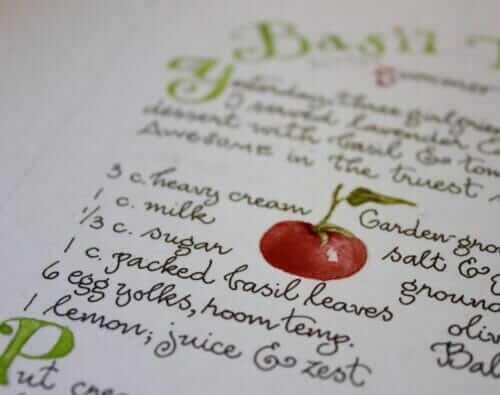 Basil
Summer
Yesterday, three
I served lavender
dessert with basil & tom
Awesome in the truest
3 c. heavy cream
1 c. milk
1/3 c. sugar
1 c. packed basil leaves
6 egg yolks, room temp.
1 lemon; juice & zest
Garden-gro
salt &
ground
oliv
Bal
Put cre